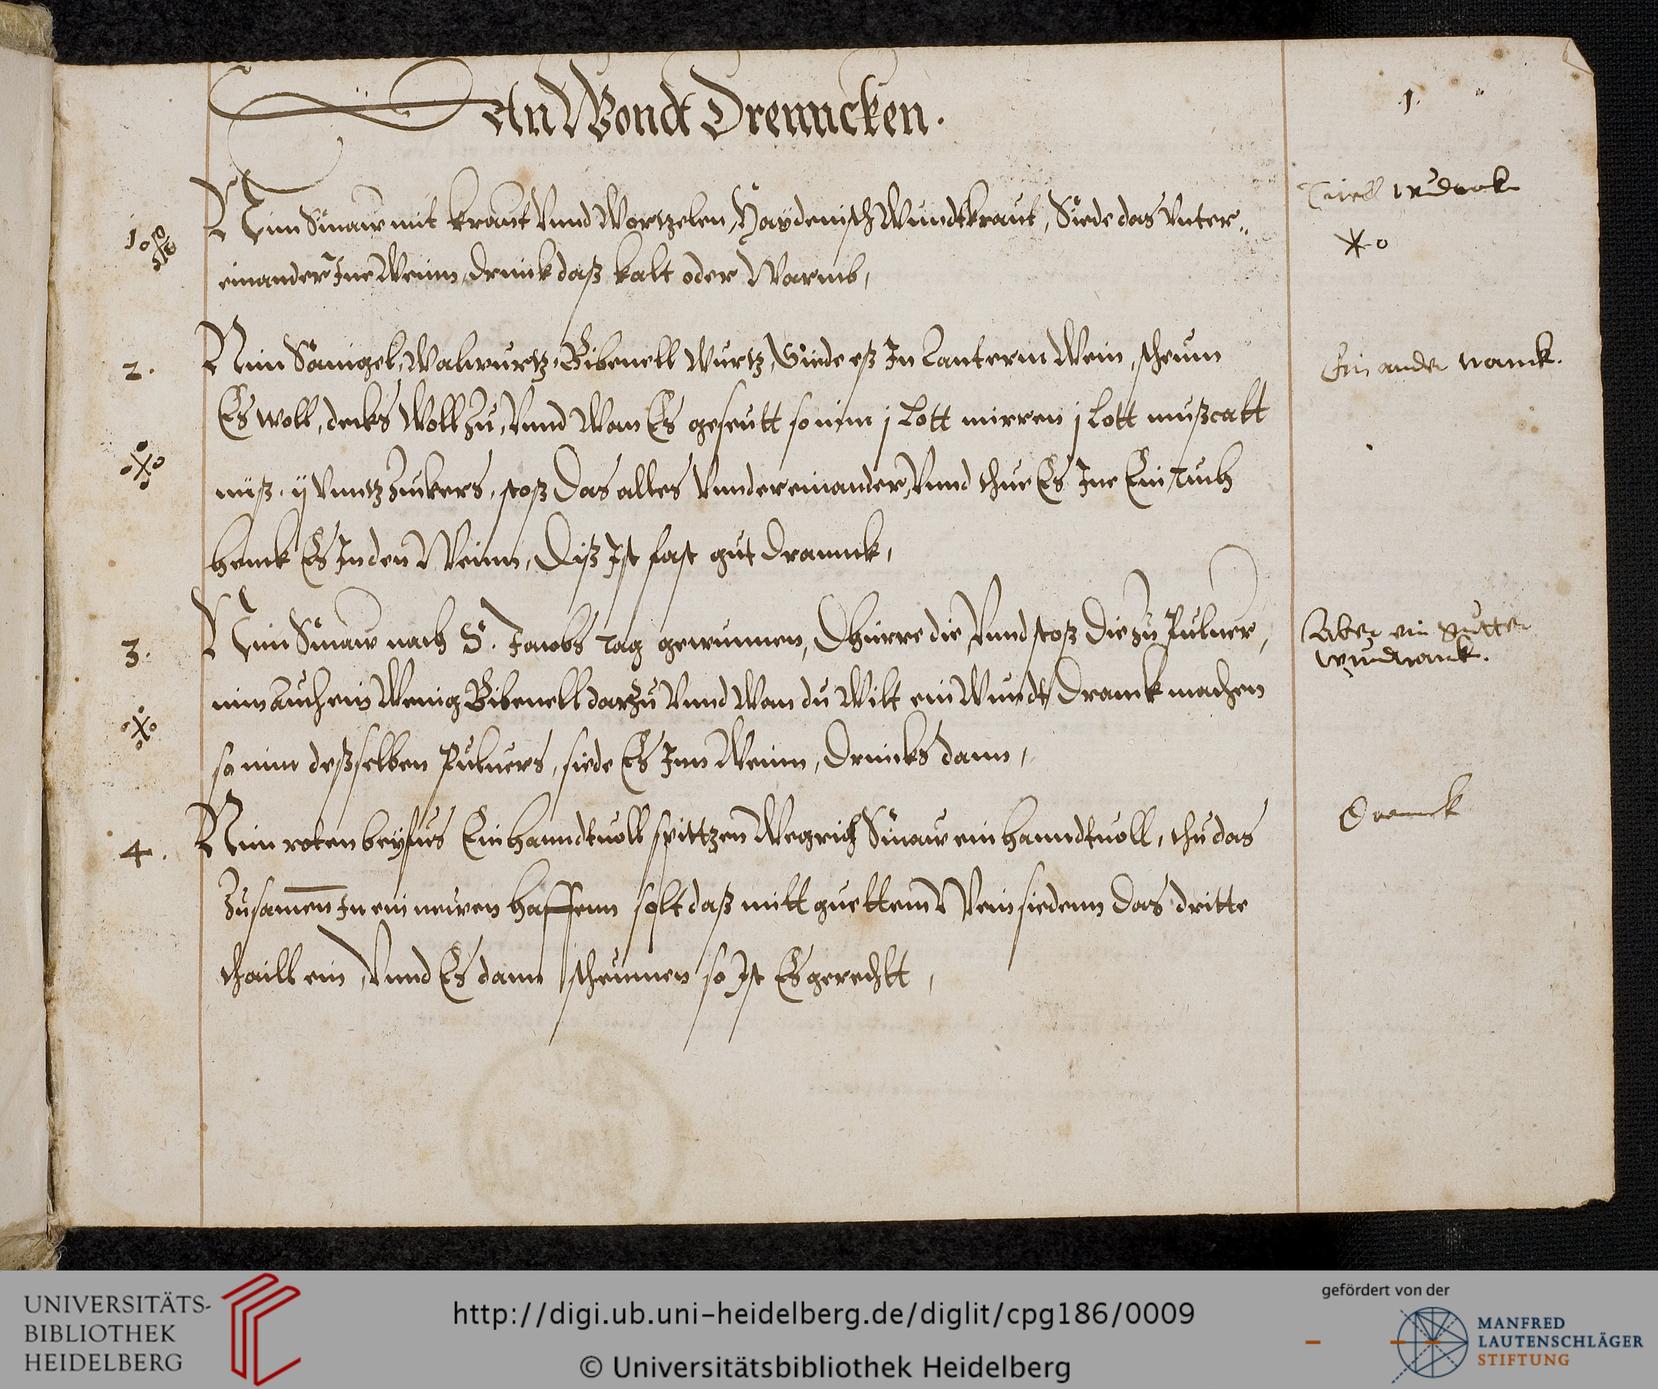 An Wondt Drenncken.
1.
1.
Nim Sinaw mit kraut vnnd Wortzelen, Haydenisch Wundtkraut, Siede das vnter-
einander Jne Weinn, drinck daß kalt oder Warmb,
2.
Nim Sanigel, Walwurtz, Bibenell wurtz, Siede eß In Lauterm Wein, scheum
Ein ander tranck.
Es woll, decks Woll Zu, Vnnd Wan Es geseutt so nim j Lott mirren j Lott mußcatt
nuß, ij vnntz Zuckers, stoß Das alles vnndereinander, Vnnd thue Es Jne Ein Tuch
henck Es In den Weinn, Diß Ist fast gut drannck,
3.
Nim Sinaw nach S. Jacobs Tag gewunnen, Dhürre die Vnnd stoß Die Zu Puluer,
Aber ein gutter
wundtranck.
nim auch ein Wenig Bibenell darzu Vnnd Wan du Wilt ein Wundt Dranck machen
so nim deßselben Puluers, siede Es Jnn Weinn, Drincks dann,
4.
Nim roten beyfus Ein hanndtuoll spittzen Wegrich Sinaw ein hanndtuoll, thu das
Dranck
Zusamen In ein newen haffenn solt daß mitt guettem Wein siedenn Das dritte
thaill ein, Vnnd Es dann scheumen so Ist Es gerechtt,
UNIVERSITÄTS-
BIBLIOTHEK
HEIDELBERG
http://digi.ub.uni-heidelberg.de/diglit/cpg186/0009
© Universitätsbibliothek Heidelberg
gefördert von der
MANFRED
LAUTENSCHLÄGER
STIFTUNG